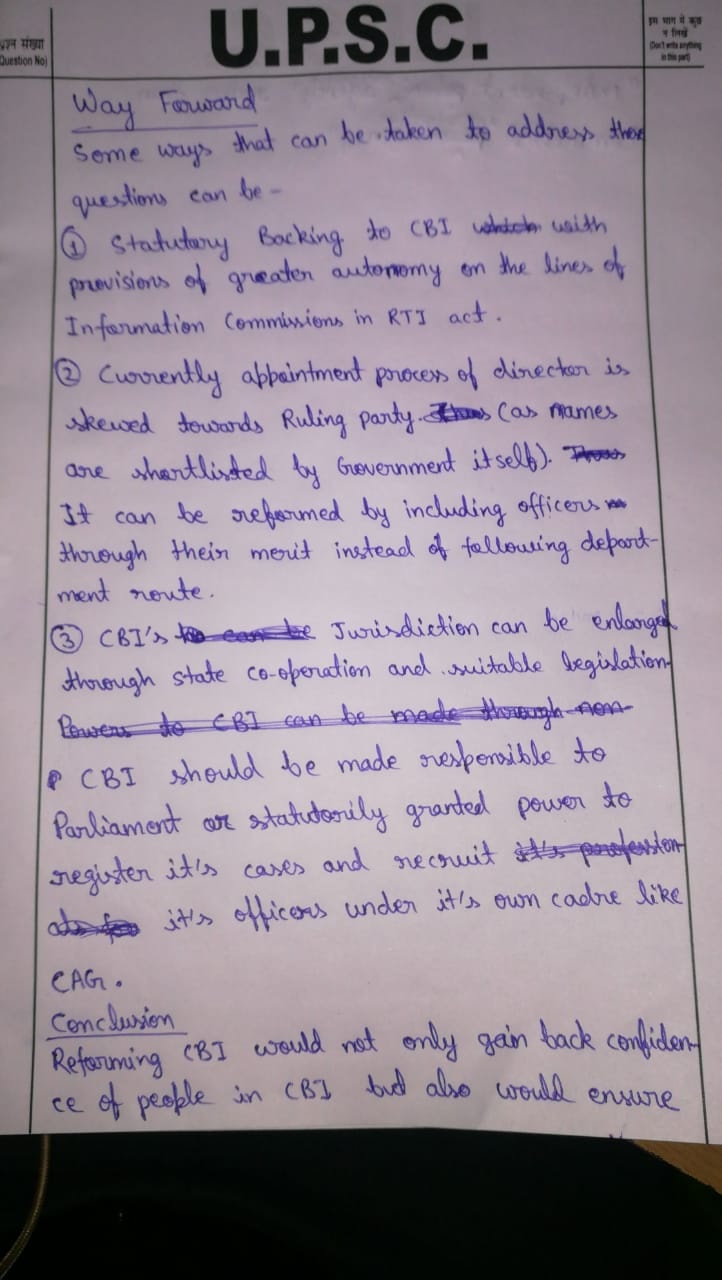 प्रश्न संख्या
Question No)
U.P.S.C.
इस भाग में कुछ
न लिखें
(Don't write anything
in this part)
Way Forward
Some ways that can be taken to address these
questions can be -
① Statutory Backing to CBI which with
provisions of greater autonomy on the lines of
Information Commissions in RTI act.
② Currently appointment process of director is
skewed towards Ruling party. (as names
are shortlisted by Government itself).
It can be reformed by including officers
through their merit instead of following depart-
ment route.
③ CBI's to can be Jurisdiction can be enlarged
through state co-operation and suitable legislation
Powers to CBI can be made through non-
CBI should be made responsible to
Parliament or statutorily granted power to
register it's cases and recruit it's profession
it's officers under it's own cadre like
CAG.
Conclusion
Reforming CBI would not only gain back confiden-
ce of people in CBI but also would ensure